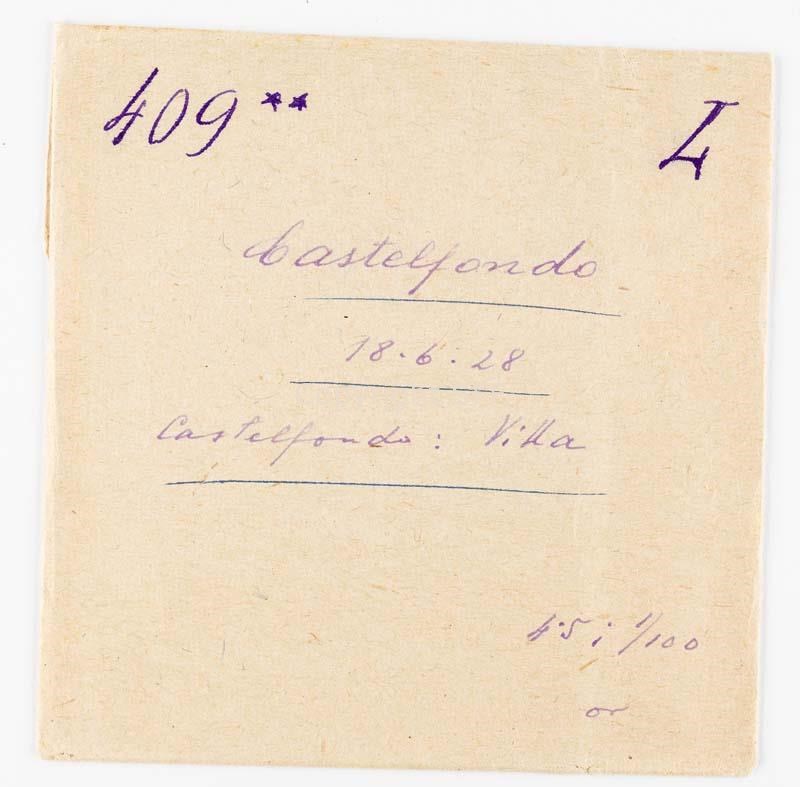 409** I
Castelfondo
18.6.28
Castelfondo: Villa
4.5; 1/100
or